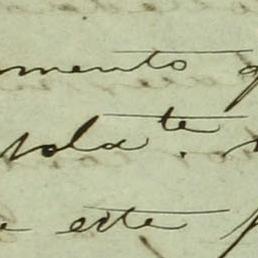 mento q
sola te.
e este p